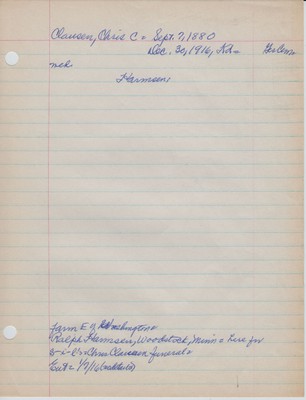 Clausen, Chris C. Sept. 7, 1880
Dec. 30, 1916,
md.
Harmsen,
Farm E of Washington
Ralph Harmsen, Woodstock, Minn. here for
Chris Clausen funeral
1/7/16